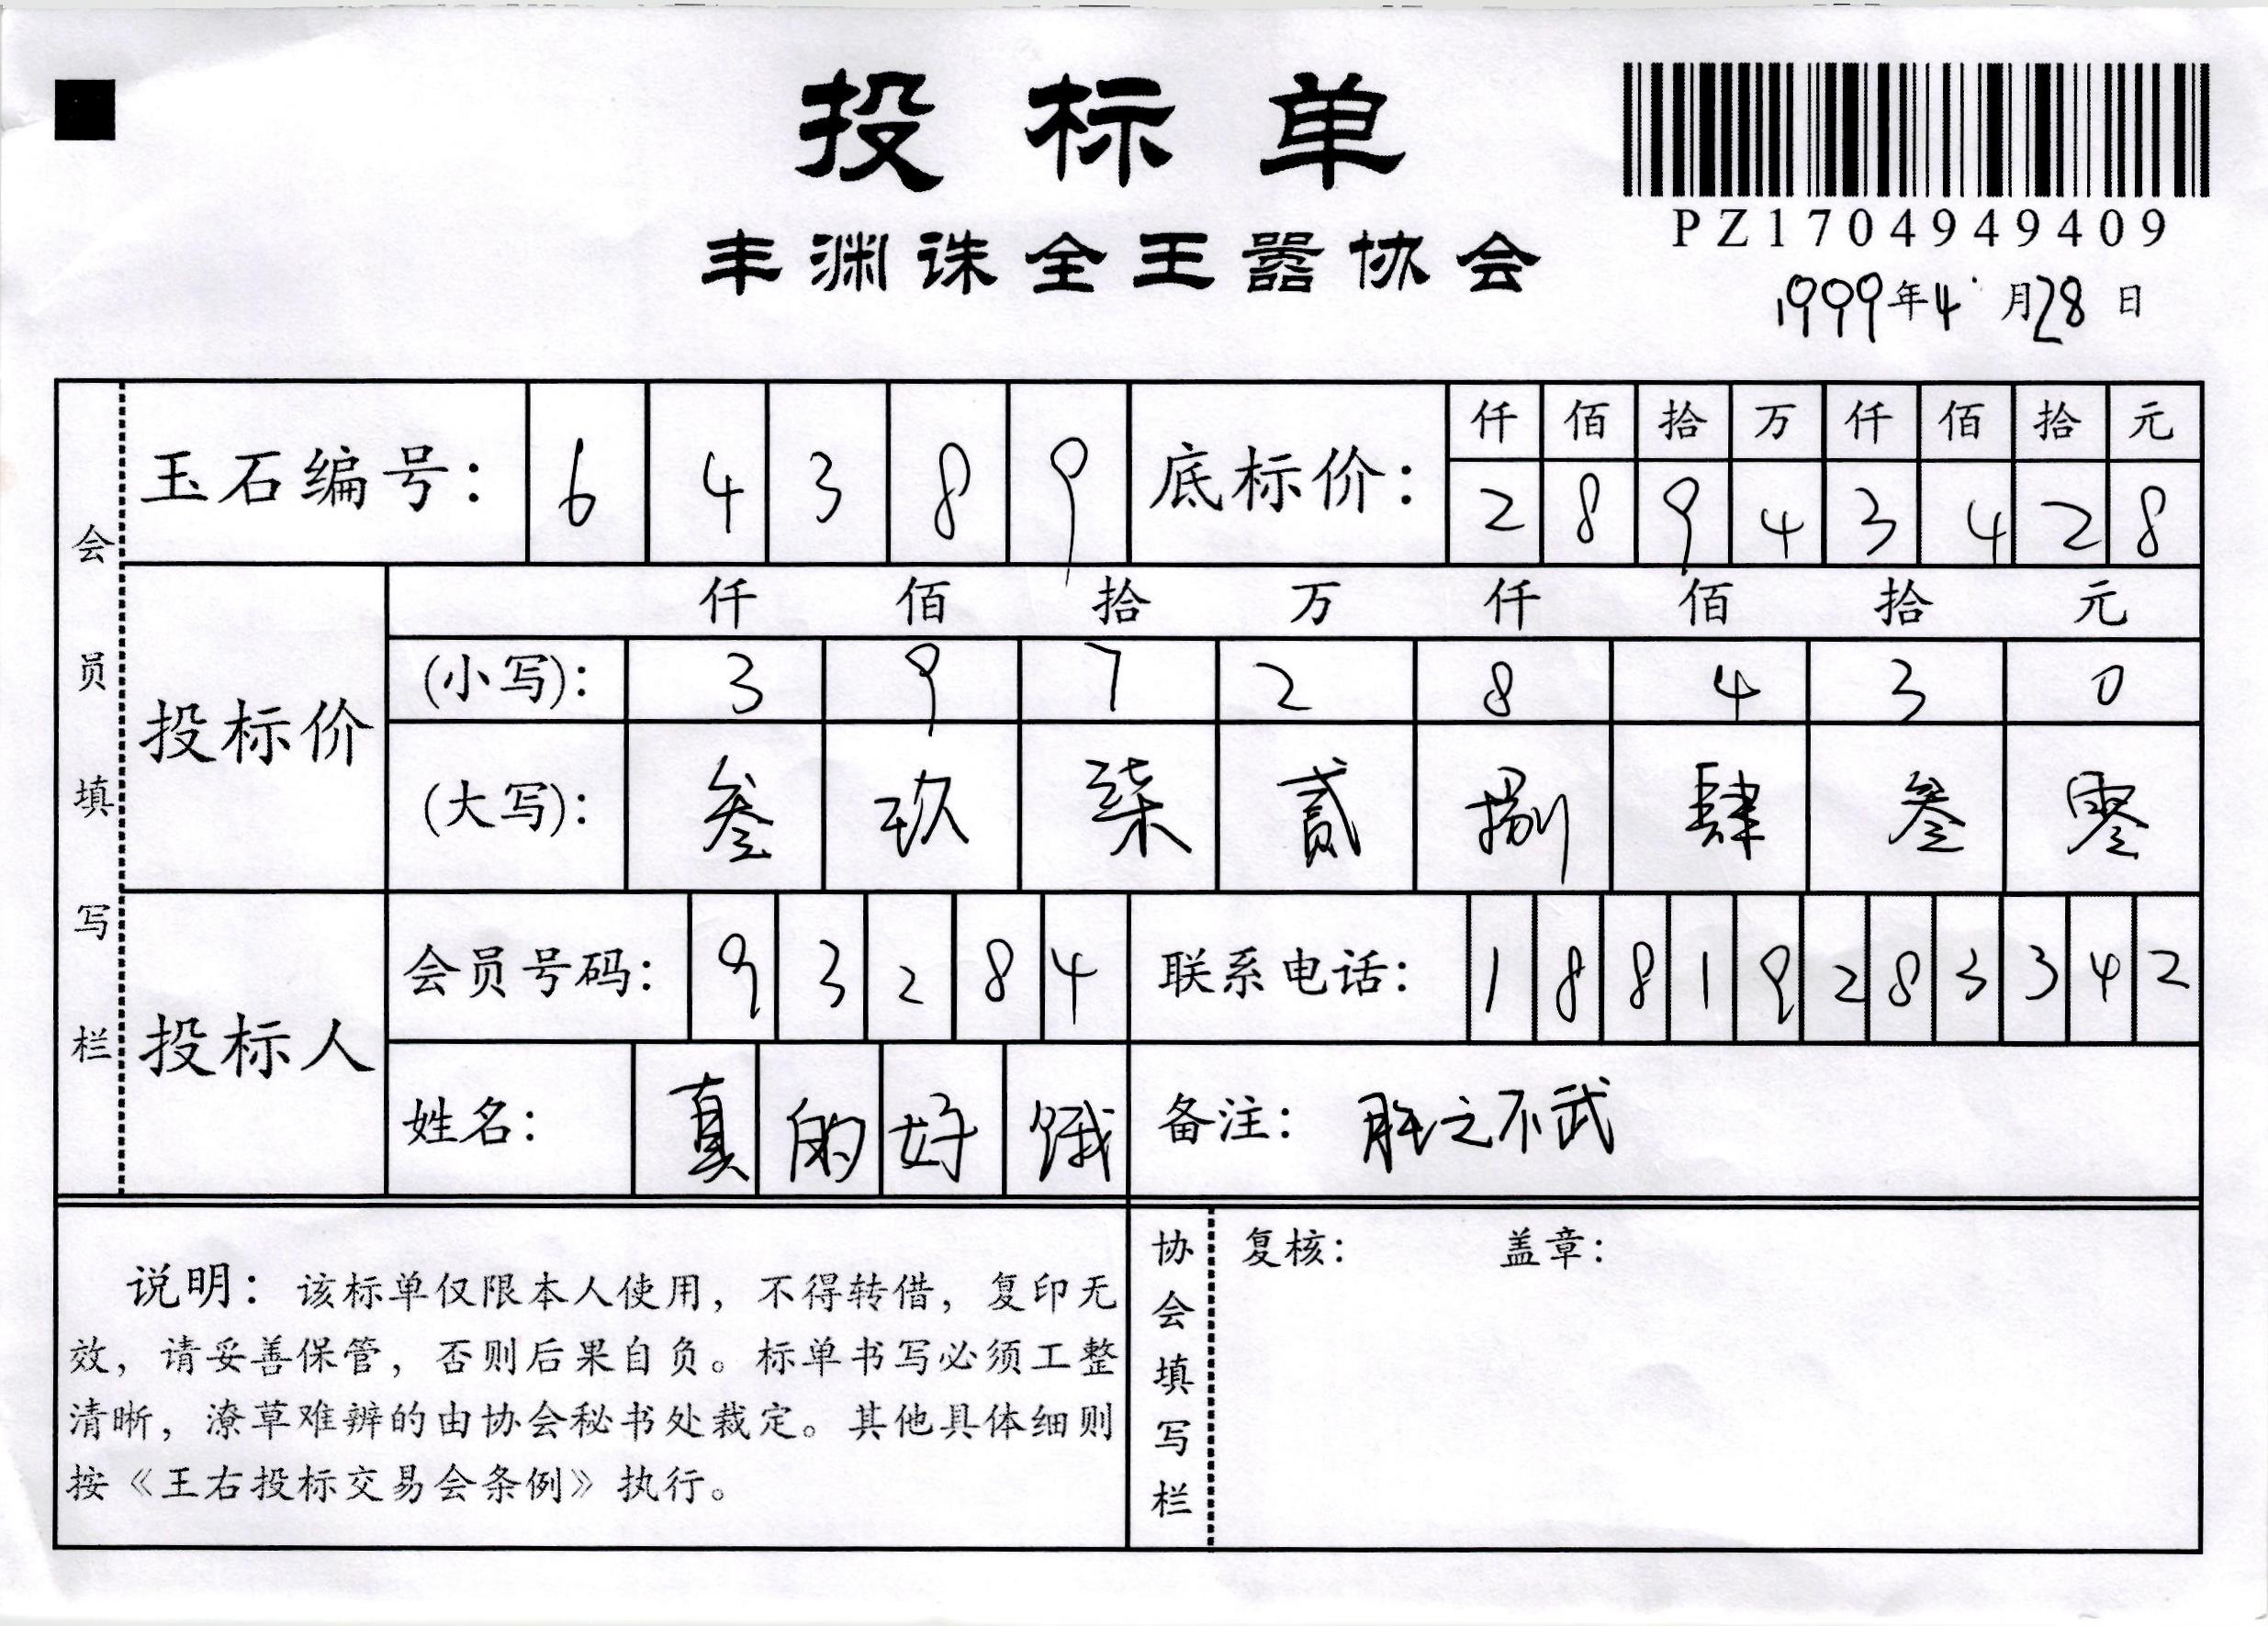 投标单
丰渊诛全王嚣协会
PZ1704949409
1999年4月28日
会员填写栏
玉石编号: 6 4 3 8 9
底标价: 仟 佰 拾 万 仟 佰 拾 元
2 8 9 4 3 4 2 8
投标价
仟 佰 拾 万 仟 佰 拾 元
(小写): 3 9 7 2 8 4 3 0
(大写): 叁 玖 柒 贰 捌 肆 叁 零
投标人
会员号码: 9 3 2 8 4
联系电话: 1 8 8 1 9 2 8 3 3 4 2
姓名: 真 的 好 饿
备注: 胜之不武
说明: 该标单仅限本人使用，不得转借，复印无
效，请妥善保管，否则后果自负。标单书写必须工整
清晰，潦草难辨的由协会秘书处裁定。其他具体细则
按《王右投标交易会条例》执行。
协会填写栏
复核: 盖章: